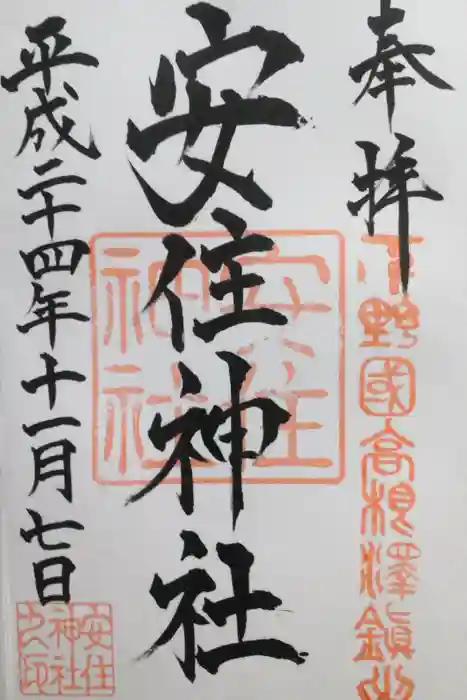 奉拝
下野國高根澤鎮守
安住神社
安住神社
平成二十四年十一月七日
安住神社之印